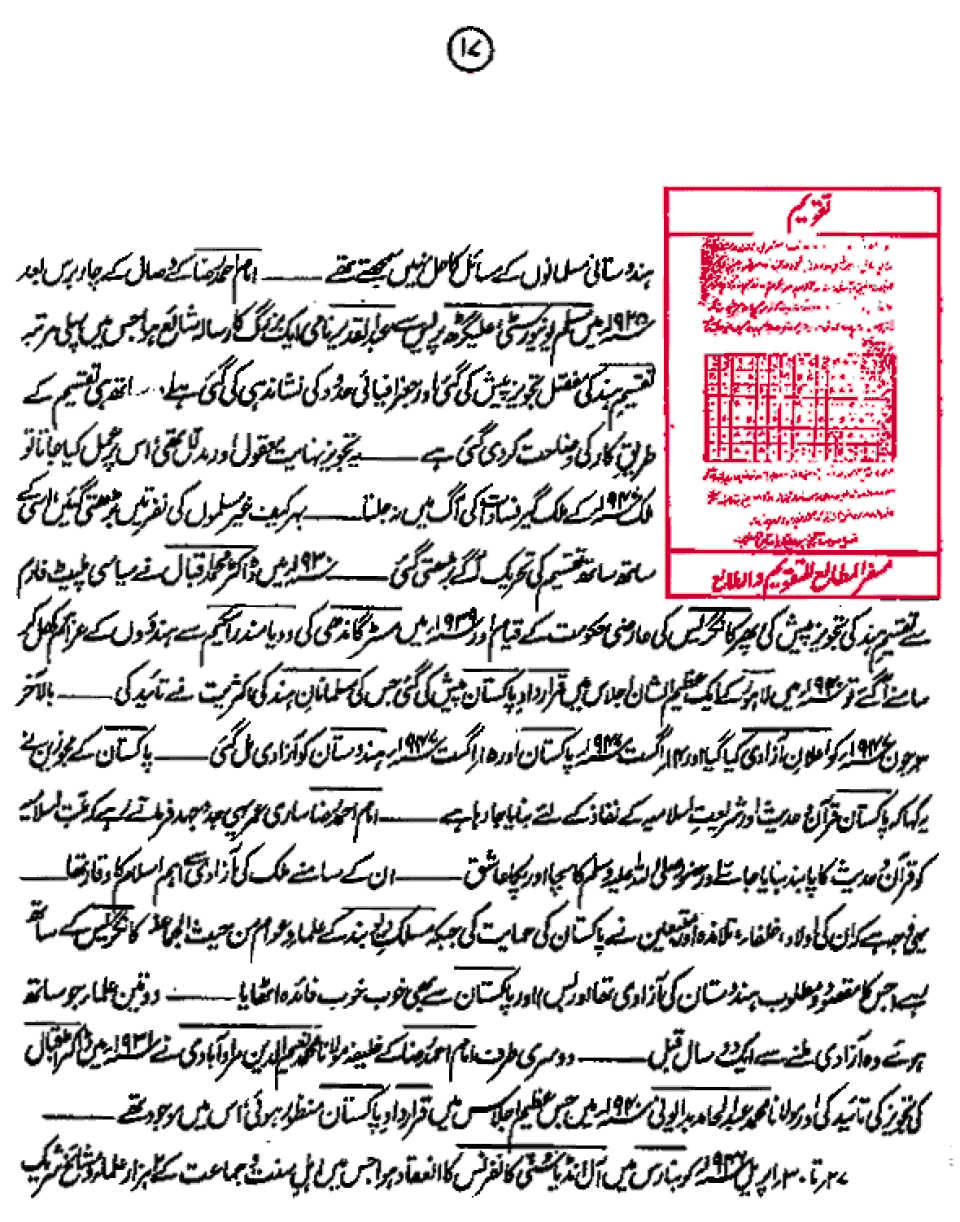 ۱۷
تقویم
سفر المطالع للتقویم والطالع
ہندوستانی مسلمانوں کے مسائل کا حل نہیں سمجھتے تھے ــــــ امام احمد رضا کے وصال کے چار برس بعد
۱۹۲۵ء میں مسلم یونیورسٹی علیگڑھ پریس سے عبدالقدیر نامی ایک بزرگ کا رسالہ شائع ہوا جس میں پہلی مرتبہ
تقسیم ہند کی مفصل تجویز پیش کی گئی اور جغرافیائی حدود کی نشاندہی کی گئی ہے، ساتھ ہی تقسیم کے
طریق کار کی وضاحت کر دی گئی ہے ــــــ یہ تجویز نہایت معقول اور مدلل تھی اس پر عمل کیا جاتا تو
ملک ۱۹۴۷ء کے ملک گیر فسادات کی آگ میں نہ جلتا ــــــ بہر کیف غیر مسلموں کی نفرتیں بڑھتی گئیں اسی کے
ساتھ ساتھ تقسیم کی تحریک آگے بڑھتی گئی ــــــ ۱۹۳۰ء میں ڈاکٹر محمد اقبال نے سیاسی پلیٹ فارم
سے تقسیم ہند کی تجویز پیش کی پھر کانگریس کی عارضی حکومت کے قیام اور ۱۹۳۹ء میں مسٹر گاندھی کی ودیا مندر اسکیم سے ہندوؤں کے عزائم کھل کر
سامنے آگئے تو ۱۹۴۰ء میں لاہور کے ایک عظیم الشان اجلاس میں قرارداد پاکستان پیش کی گئی جس کی مسلمانان ہند کی اکثریت نے تائید کی ــــــ بالآخر
۳ جون ۱۹۴۷ء کو اعلان آزادی کیا گیا اور ۱۴ اگست ۱۹۴۷ء پاکستان اور ۱۵ اگست ۱۹۴۷ء ہندوستان کو آزادی مل گئی ــــــ پاکستان کے مجوزین نے
یہ کہا کہ پاکستان قرآن و حدیث اور شریعت اسلامیہ کے نفاذ کے لئے بنایا جا رہا ہے ــــــ امام احمد رضا ساری عمر یہی جدوجہد فرماتے رہے کہ ملت اسلامیہ
کو قرآن و حدیث کا پابند بنایا جائے اور حضور صلی اللہ علیہ وسلم کا سچا اور پکا عاشق ــــــ ان کے سامنے ملک کی آزادی سے اہم اسلام کا وقار تھا ــــــ
یہی وجہ ہے کہ ان کی اولاد، خلفاء، تلامذہ اور متبعین نے پاکستان کی حمایت کی جبکہ مسلک دیوبند کے علماء و عوام من حیث الجماعۃ کانگریس کے ساتھ
رہے جس کا مقصود و مطلوب ہندوستان کی آزادی تھا اور بس، اور پاکستان سے بھی خوب خوب فائدہ اٹھایا ــــــ دو تین علماء جو ساتھ
ہوئے وہ آزادی ملنے سے ایک دو سال قبل ــــــ دوسری طرف امام احمد رضا کے خلیفہ مولانا محمد نعیم الدین مراد آبادی نے ۱۹۳۱ء میں ڈاکٹر اقبال
کی تجویز کی تائید کی اور مولانا محمد عبدالحامد بدایونی ۱۹۴۰ء میں جس عظیم اجلاس میں قرارداد پاکستان منظور ہوئی اس میں موجود تھے ــــــ
۲۷ تا ۳۰ اپریل ۱۹۴۶ء کو بنارس میں آل انڈیا سنی کانفرنس کا انعقاد ہوا جس میں اہل سنت و جماعت کے ۲ ہزار علماء و مشائخ شریک